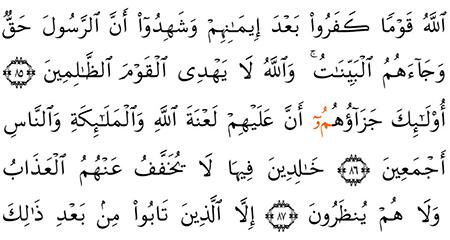 اللَّهُ قَوْمًا كَفَرُواْ بَعْدَ إِيمَـٰنِهِمْ وَشَهِدُوٓاْ أَنَّ ٱلرَّسُولَ حَقٌّ
وَجَآءَهُمُ ٱلْبَيِّنَـٰتُ ۚ وَٱللَّهُ لَا يَهْدِى ٱلْقَوْمَ ٱلظَّـٰلِمِينَ ٨٥
أُوْلَـٰٓئِكَ جَزَآؤُهُمُۥٓ أَنَّ عَلَيْهِمْ لَعْنَةَ ٱللَّهِ وَٱلْمَلَـٰٓئِكَةِ وَٱلنَّاسِ
أَجْمَعِينَ ٨٦ خَـٰلِدِينَ فِيهَا لَا يُخَفَّفُ عَنْهُمُ ٱلْعَذَابُ
وَلَا هُمْ يُنظَرُونَ ٨٧ إِلَّا ٱلَّذِينَ تَابُواْ مِنۢ بَعْدِ ذَٰلِكَ